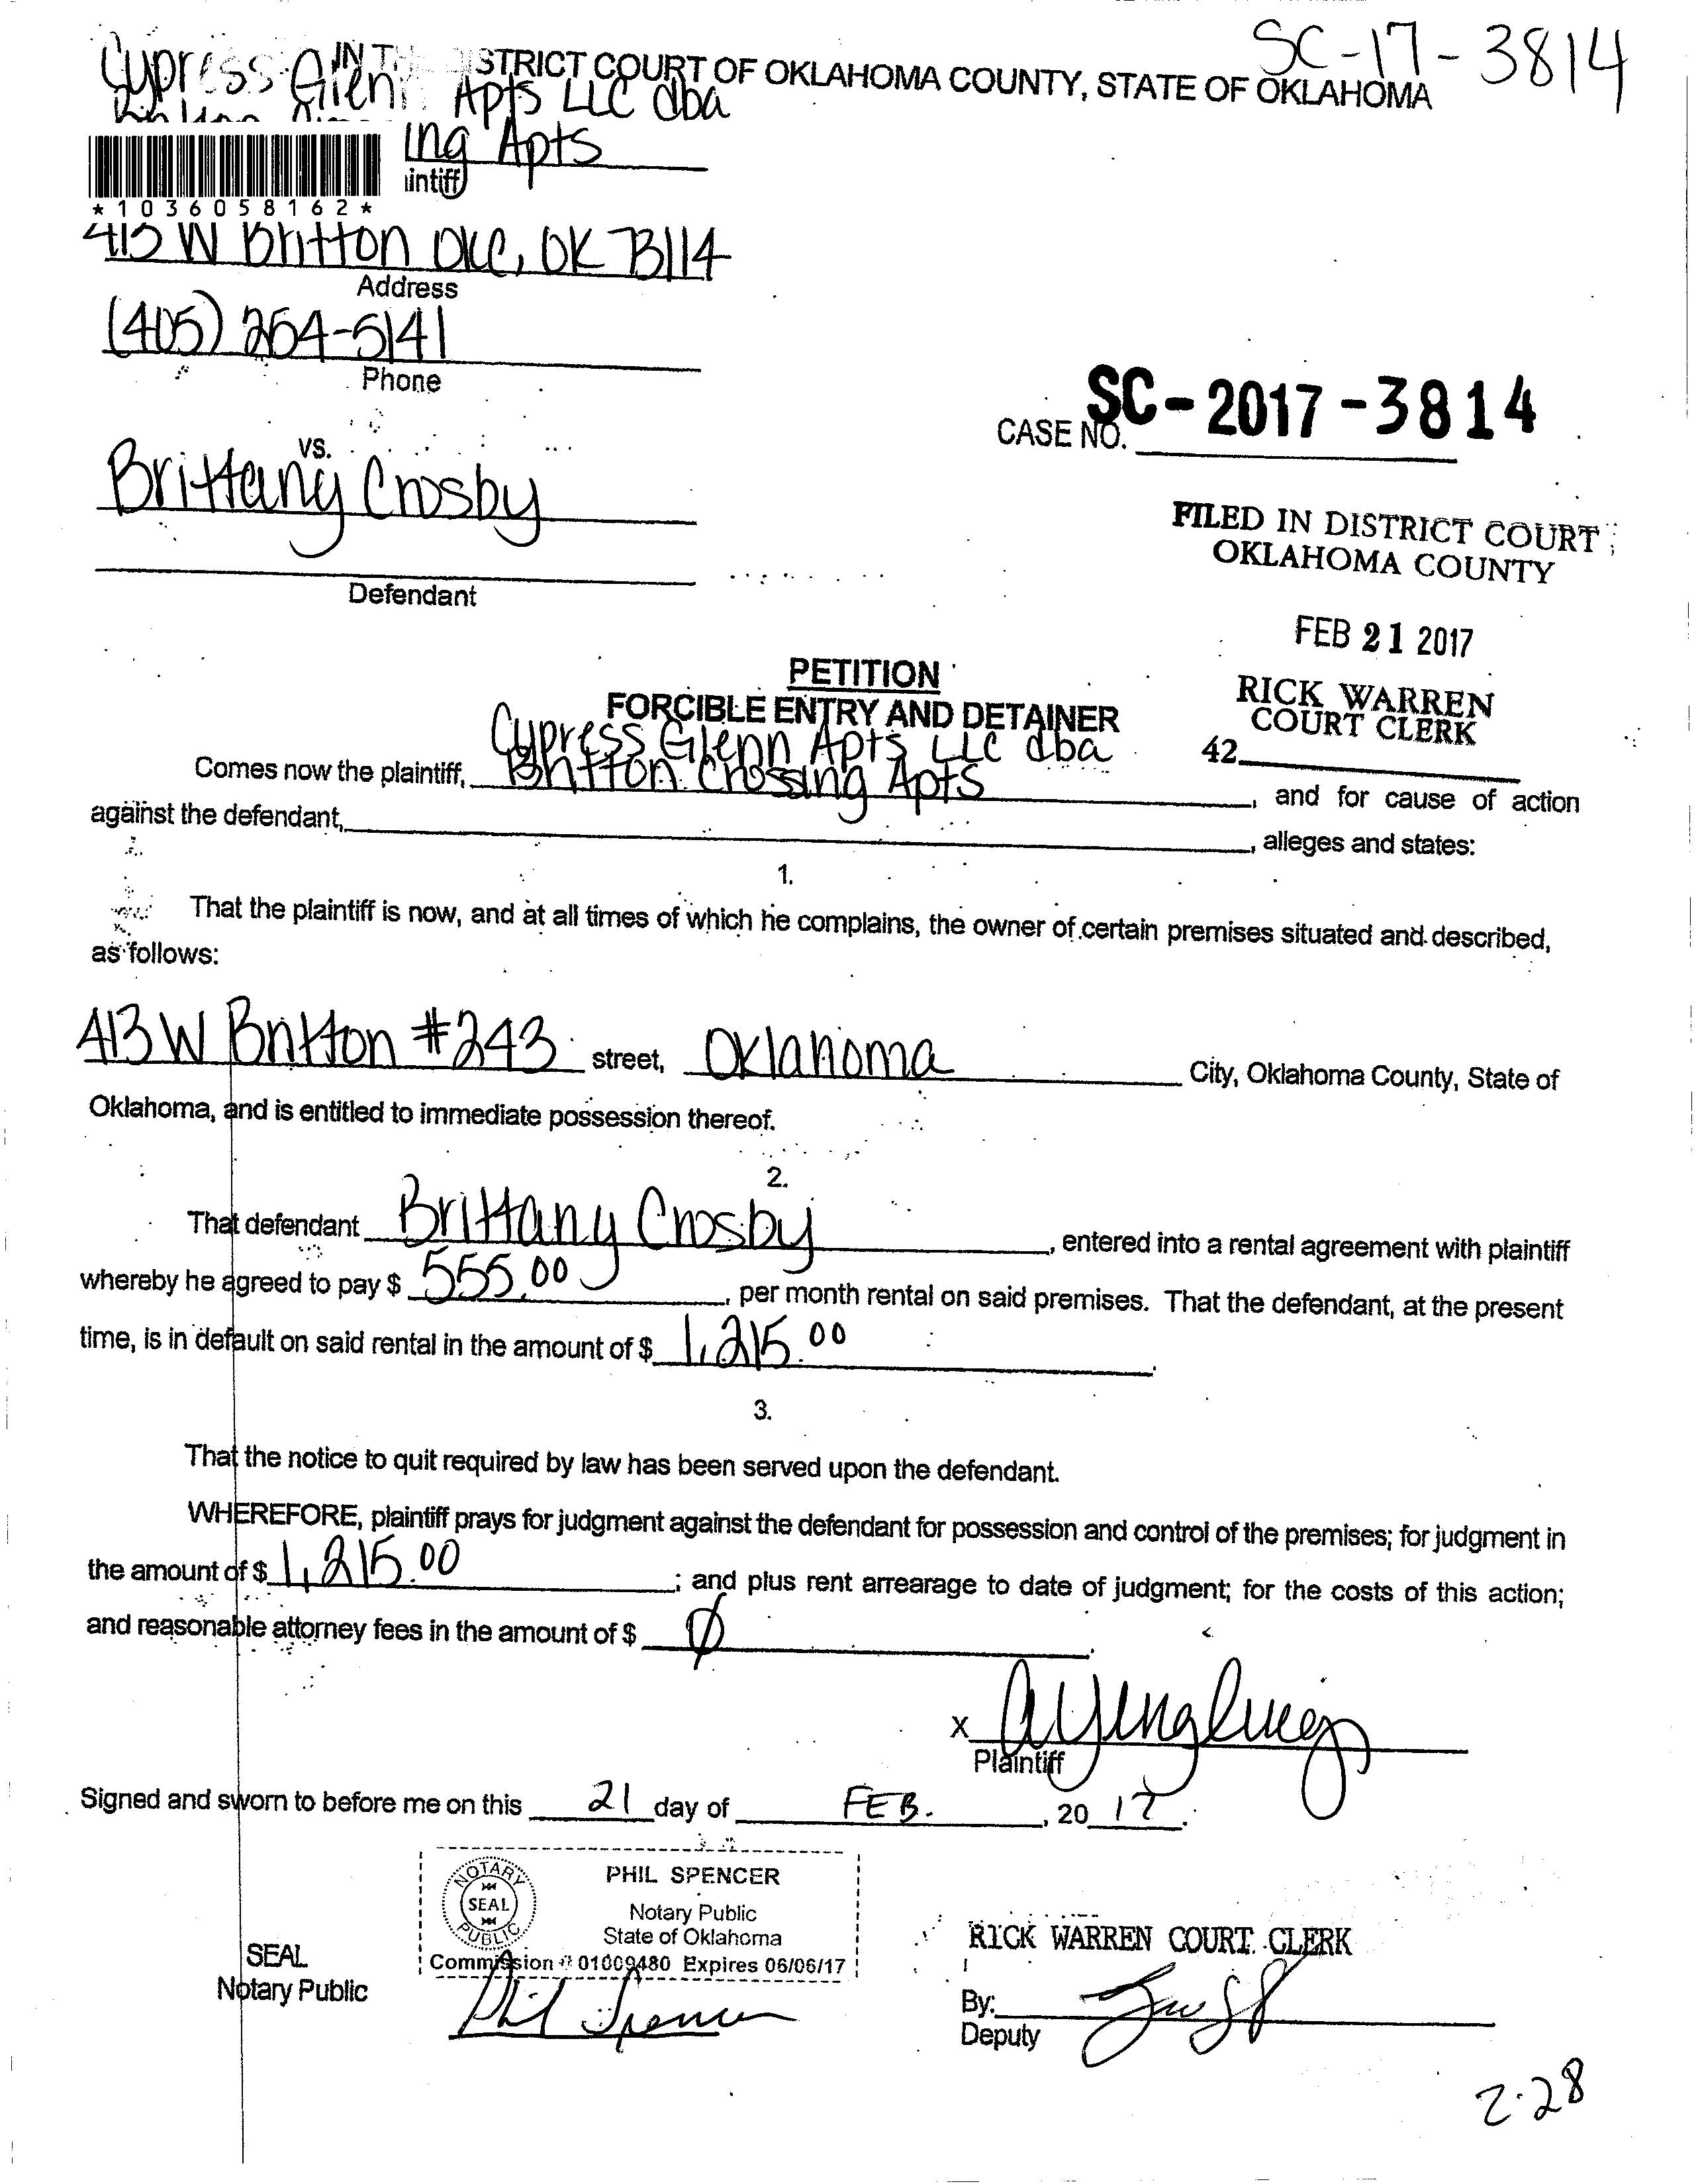 SC-17-3814
IN TH STRICT COURT OF OKLAHOMA COUNTY, STATE OF OKLAHOMA
Cypress Glenn Apts LLC dba
ing Apts
intiff
*1036058162*
413 W Britton OKC, OK 73114
Address
(405) 254-5141
Phone
CASE NO. SC-2017-3814
vs.
Brittany Crosby
Defendant
FILED IN DISTRICT COURT
OKLAHOMA COUNTY
FEB 21 2017
RICK WARREN
COURT CLERK
42
PETITION
FORCIBLE ENTRY AND DETAINER
Cypress Glenn Apts LLC dba
Comes now the plaintiff, Britton Crossing Apts, and for cause of action
against the defendant, , alleges and states:
1.
That the plaintiff is now, and at all times of which he complains, the owner of certain premises situated and described,
as follows:
413 W Britton #243 street, Oklahoma City, Oklahoma County, State of
Oklahoma, and is entitled to immediate possession thereof.
2.
That defendant Brittany Crosby, entered into a rental agreement with plaintiff
whereby he agreed to pay $ 555.00, per month rental on said premises. That the defendant, at the present
time, is in default on said rental in the amount of $ 1,215.00.
3.
That the notice to quit required by law has been served upon the defendant.
WHEREFORE, plaintiff prays for judgment against the defendant for possession and control of the premises; for judgment in
the amount of $ 1,215.00; and plus rent arrearage to date of judgment; for the costs of this action;
and reasonable attorney fees in the amount of $ Ø.
X
Plaintiff
Signed and sworn to before me on this 21 day of FEB., 20 17.
NOTARY PUBLIC
SEAL
PHIL SPENCER
Notary Public
State of Oklahoma
Commission # 01009480 Expires 06/06/17
SEAL
Notary Public
Phil Spencer
RICK WARREN COURT CLERK
By:
Deputy
2-28